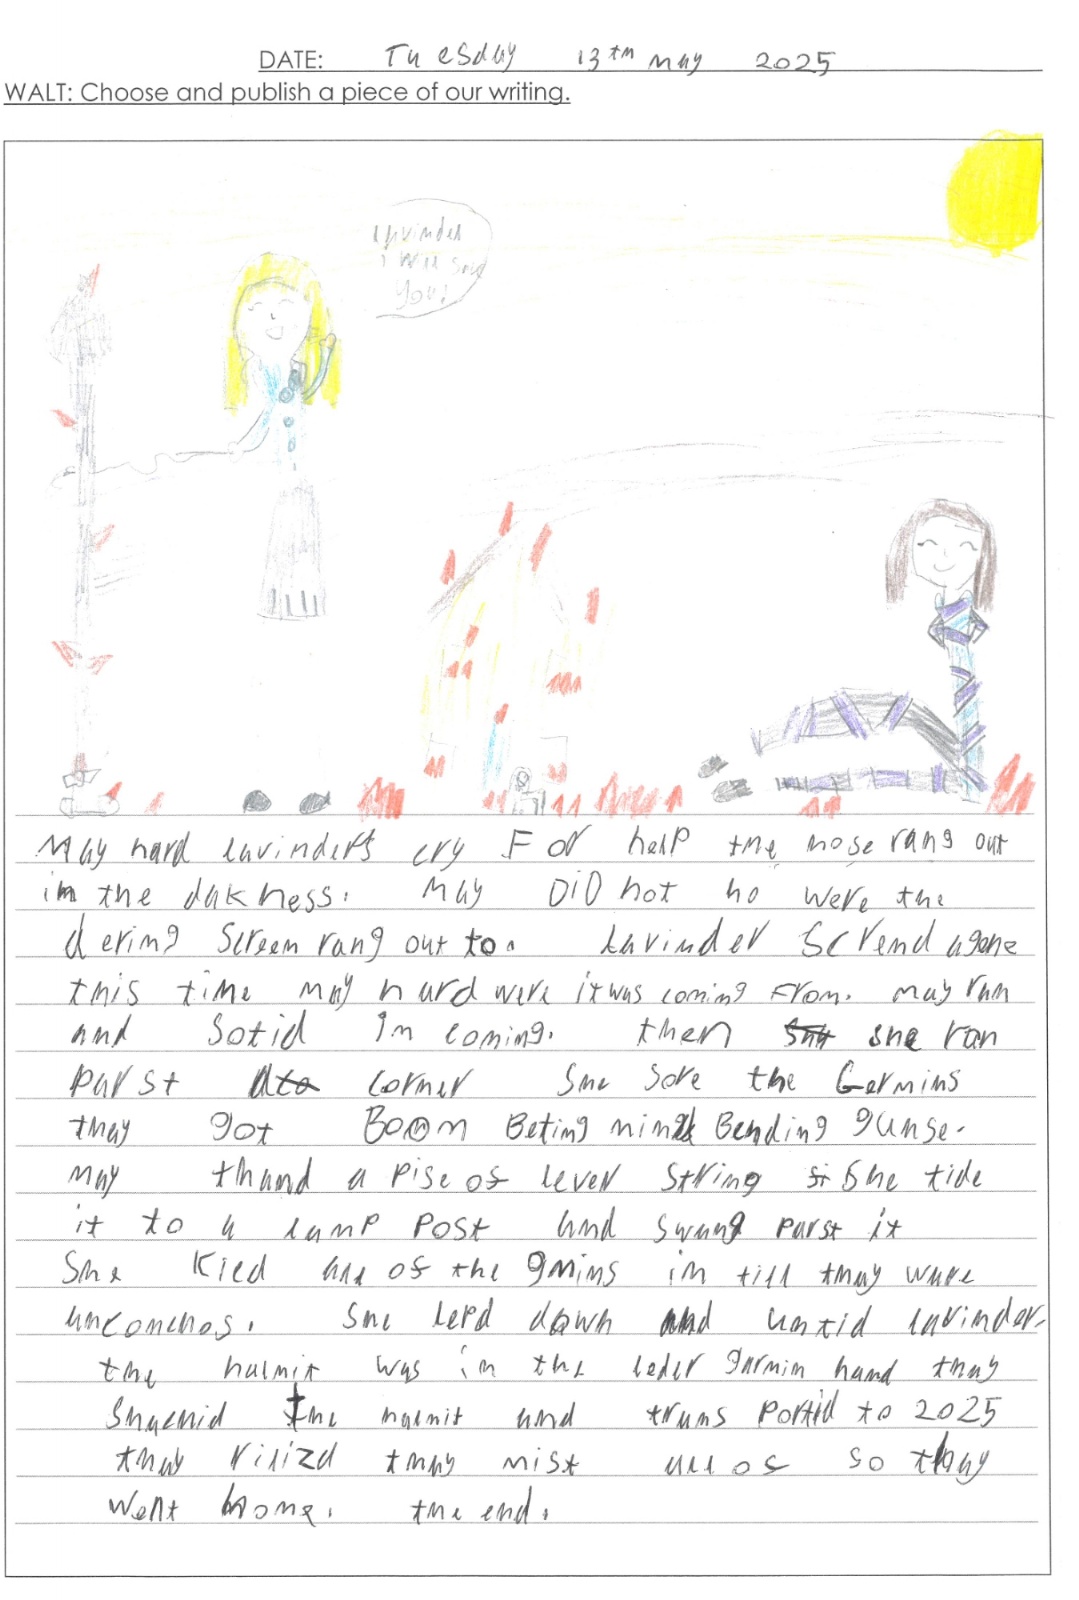 DATE: Tuesday 13th may 2025
WALT: Choose and publish a piece of our writing.
Lavinder
i will save
You!
May hard Lavinders cry For help the nose rang out
in the dakness. May DiD not no were the
dering Screem rang out to. Lavinder Scremd agene
this time may hard were it was coming From. May ran
and Sotid im coming. then she ran
parst corner She Sore the Germins
thay got Boom Beting Bending gunse.
May thand a Pise of lever String She tide
it to a lamp Post and Swang parst it
She Kicd all of the gmins in till thay ware
unconchos. She lepd down and untid lavinder.
the halmit was in the leder garmin hand thay
Snachid the halmit and trans Portid to 2025
thay rilizd thay mist all of so thay
went home. the end.